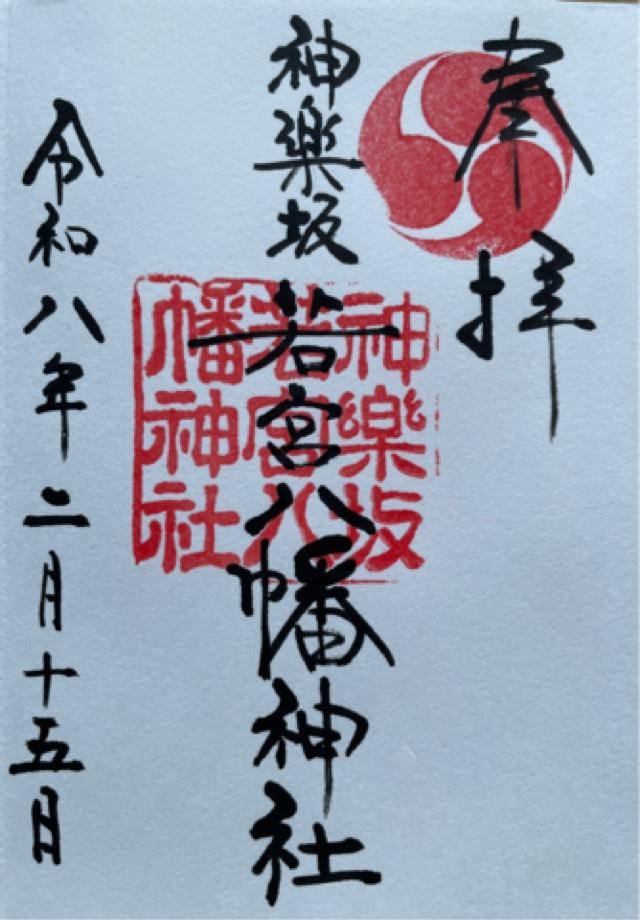 奉拝
神楽坂 若宮八幡神社
神樂坂
若宮八
幡神社
令和八年二月十五日